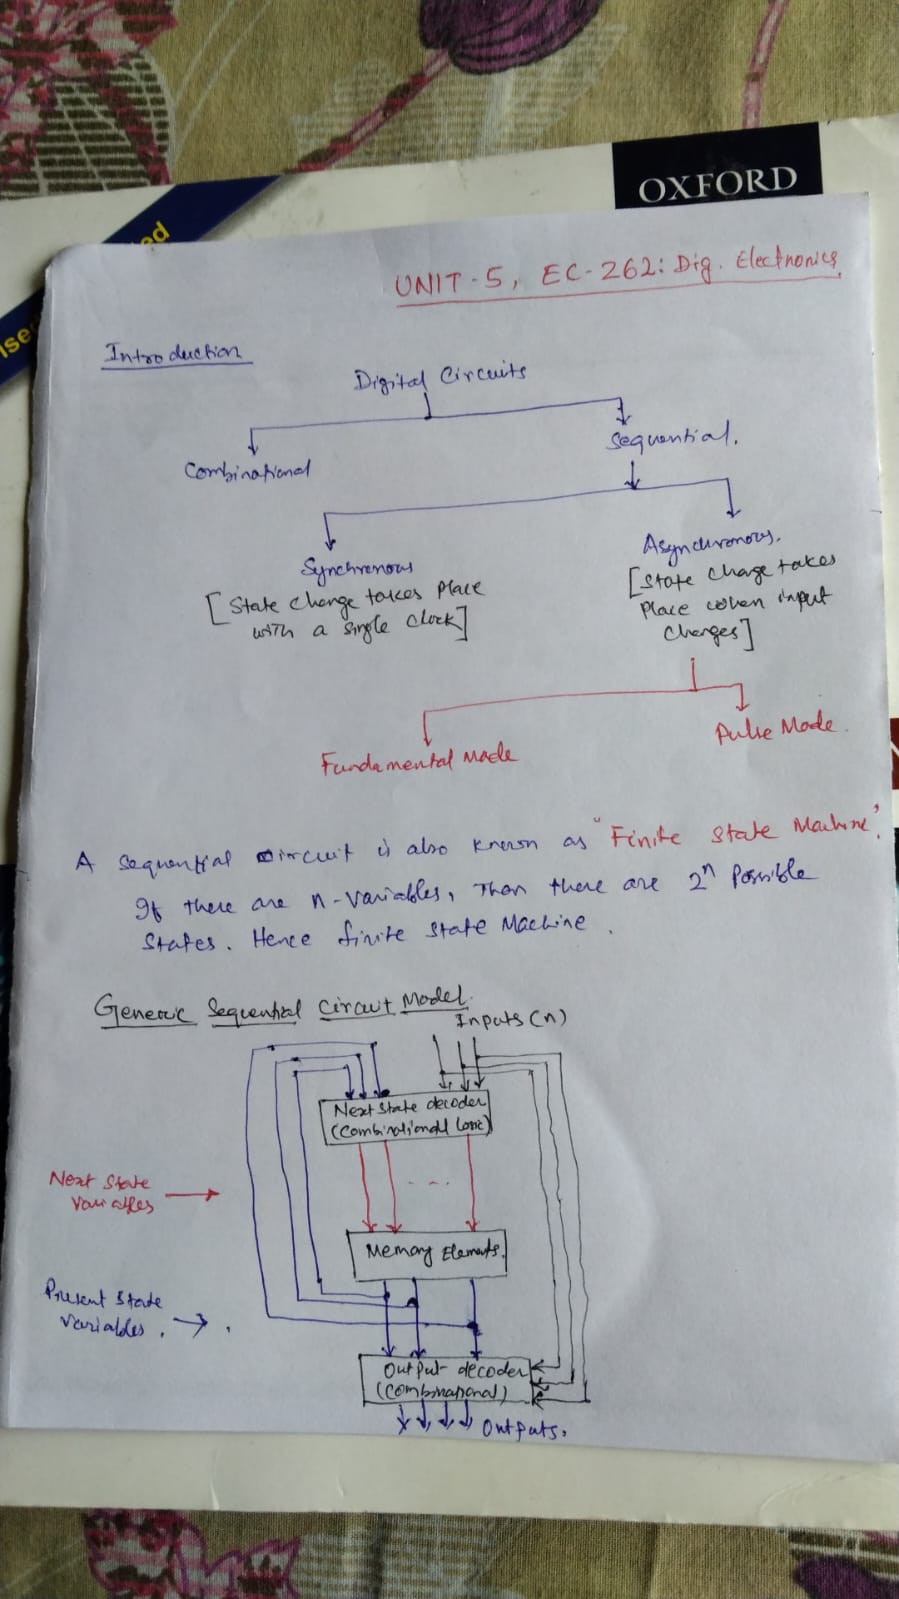 OXFORD
ed
ise
UNIT-5, EC-262: Dig. Electronics.
Introduction
Digital Circuits
Combinational
Sequential.
Synchronous
[State change takes place
with a single clock]
Asynchronous.
[State change takes
place when input
changes]
Fundamental Mode
Pulse Mode.
A sequential circuit is also known as "Finite State Machine".
If there are n-variables, Then there are 2ⁿ possible
states. Hence finite state Machine.
Generic Sequential Circuit Model.
Inputs (n)
Next State decoder
(Combinational Logic)
Next State
Variables
Memory Elements.
Present State
Variables.
Output decoder
(Combinational)
Outputs.